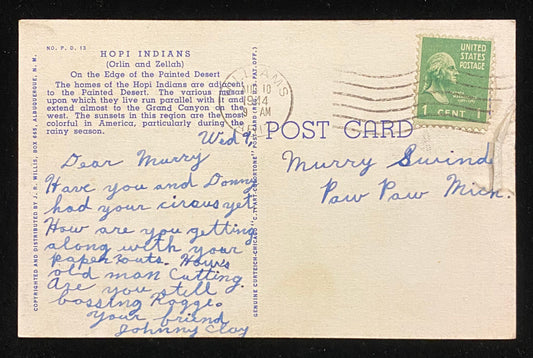 NO. P. O. 13
HOPI INDIANS
(Orlin and Zellah)
On the Edge of the Painted Desert
The homes of the Hopi Indians are adjacent
to the Painted Desert. The various mesas
upon which they live run parallel with it and
extend almost to the Grand Canyon on the
west. The sunsets in this region are the most
colorful in America, particularly during the
rainy season.
Wed 9,
Dear Murry
Have you and Donny
had your circus yet
How are you getting
along with your
paper routs. How's
old man Cutting.
Are you still
bossing Rogge.
Your friend
Johnny Clay
COPYRIGHTED AND DISTRIBUTED BY J. R. WILLIS, BOX 465, ALBUQUERQUE, N. M.
GENUINE CURTEICH-CHICAGO "C.T. ART-COLORTONE" POST CARD (REG. U. S. PAT. OFF.)
AUG 10
1944
AM
UNITED
STATES
POSTAGE
1 CENT 1
POST CARD
Murry Swind
Paw Paw Mich.